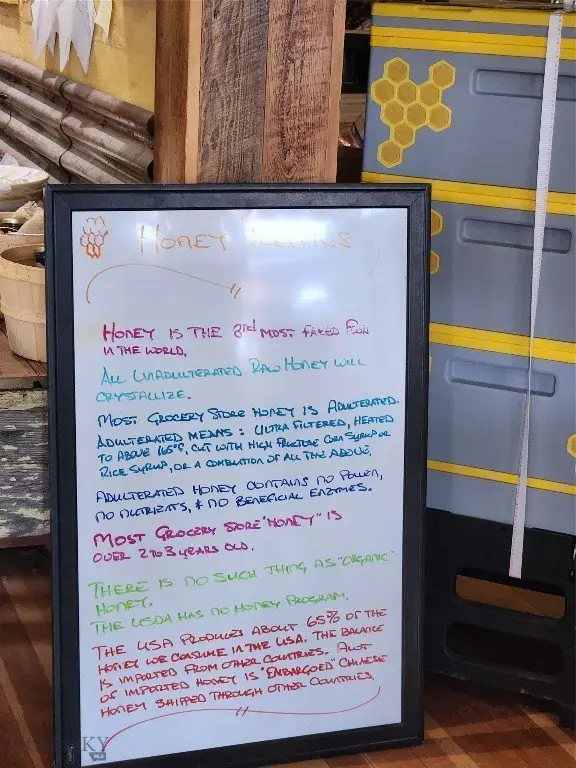 HONEY
HONEY IS THE 3rd MOST FAKED FOOD
IN THE WORLD.
ALL UNADULTERATED RAW HONEY WILL
CRYSTALLIZE.
MOST GROCERY STORE HONEY IS ADULTERATED.
ADULTERATED MEANS: ULTRA FILTERED, HEATED
TO ABOVE 165°F, CUT WITH HIGH FRUCTOSE CORN SYRUP OR
RICE SYRUP, OR A COMBINATION OF ALL THE ABOVE.
ADULTERATED HONEY CONTAINS NO POLLEN,
NO NUTRIENTS, & NO BENEFICIAL ENZYMES.
MOST GROCERY STORE "HONEY" IS
OVER 2 TO 3 YEARS OLD.
THERE IS NO SUCH THING AS "ORGANIC"
HONEY.
THE USDA HAS NO HONEY PROGRAM.
THE USA PRODUCES ABOUT 65% OF THE
HONEY WE CONSUME IN THE USA. THE BALANCE
IS IMPORTED FROM OTHER COUNTRIES. A LOT
OF IMPORTED HONEY IS "EMBARGOED" CHINESE
HONEY SHIPPED THROUGH OTHER COUNTRIES.
KY